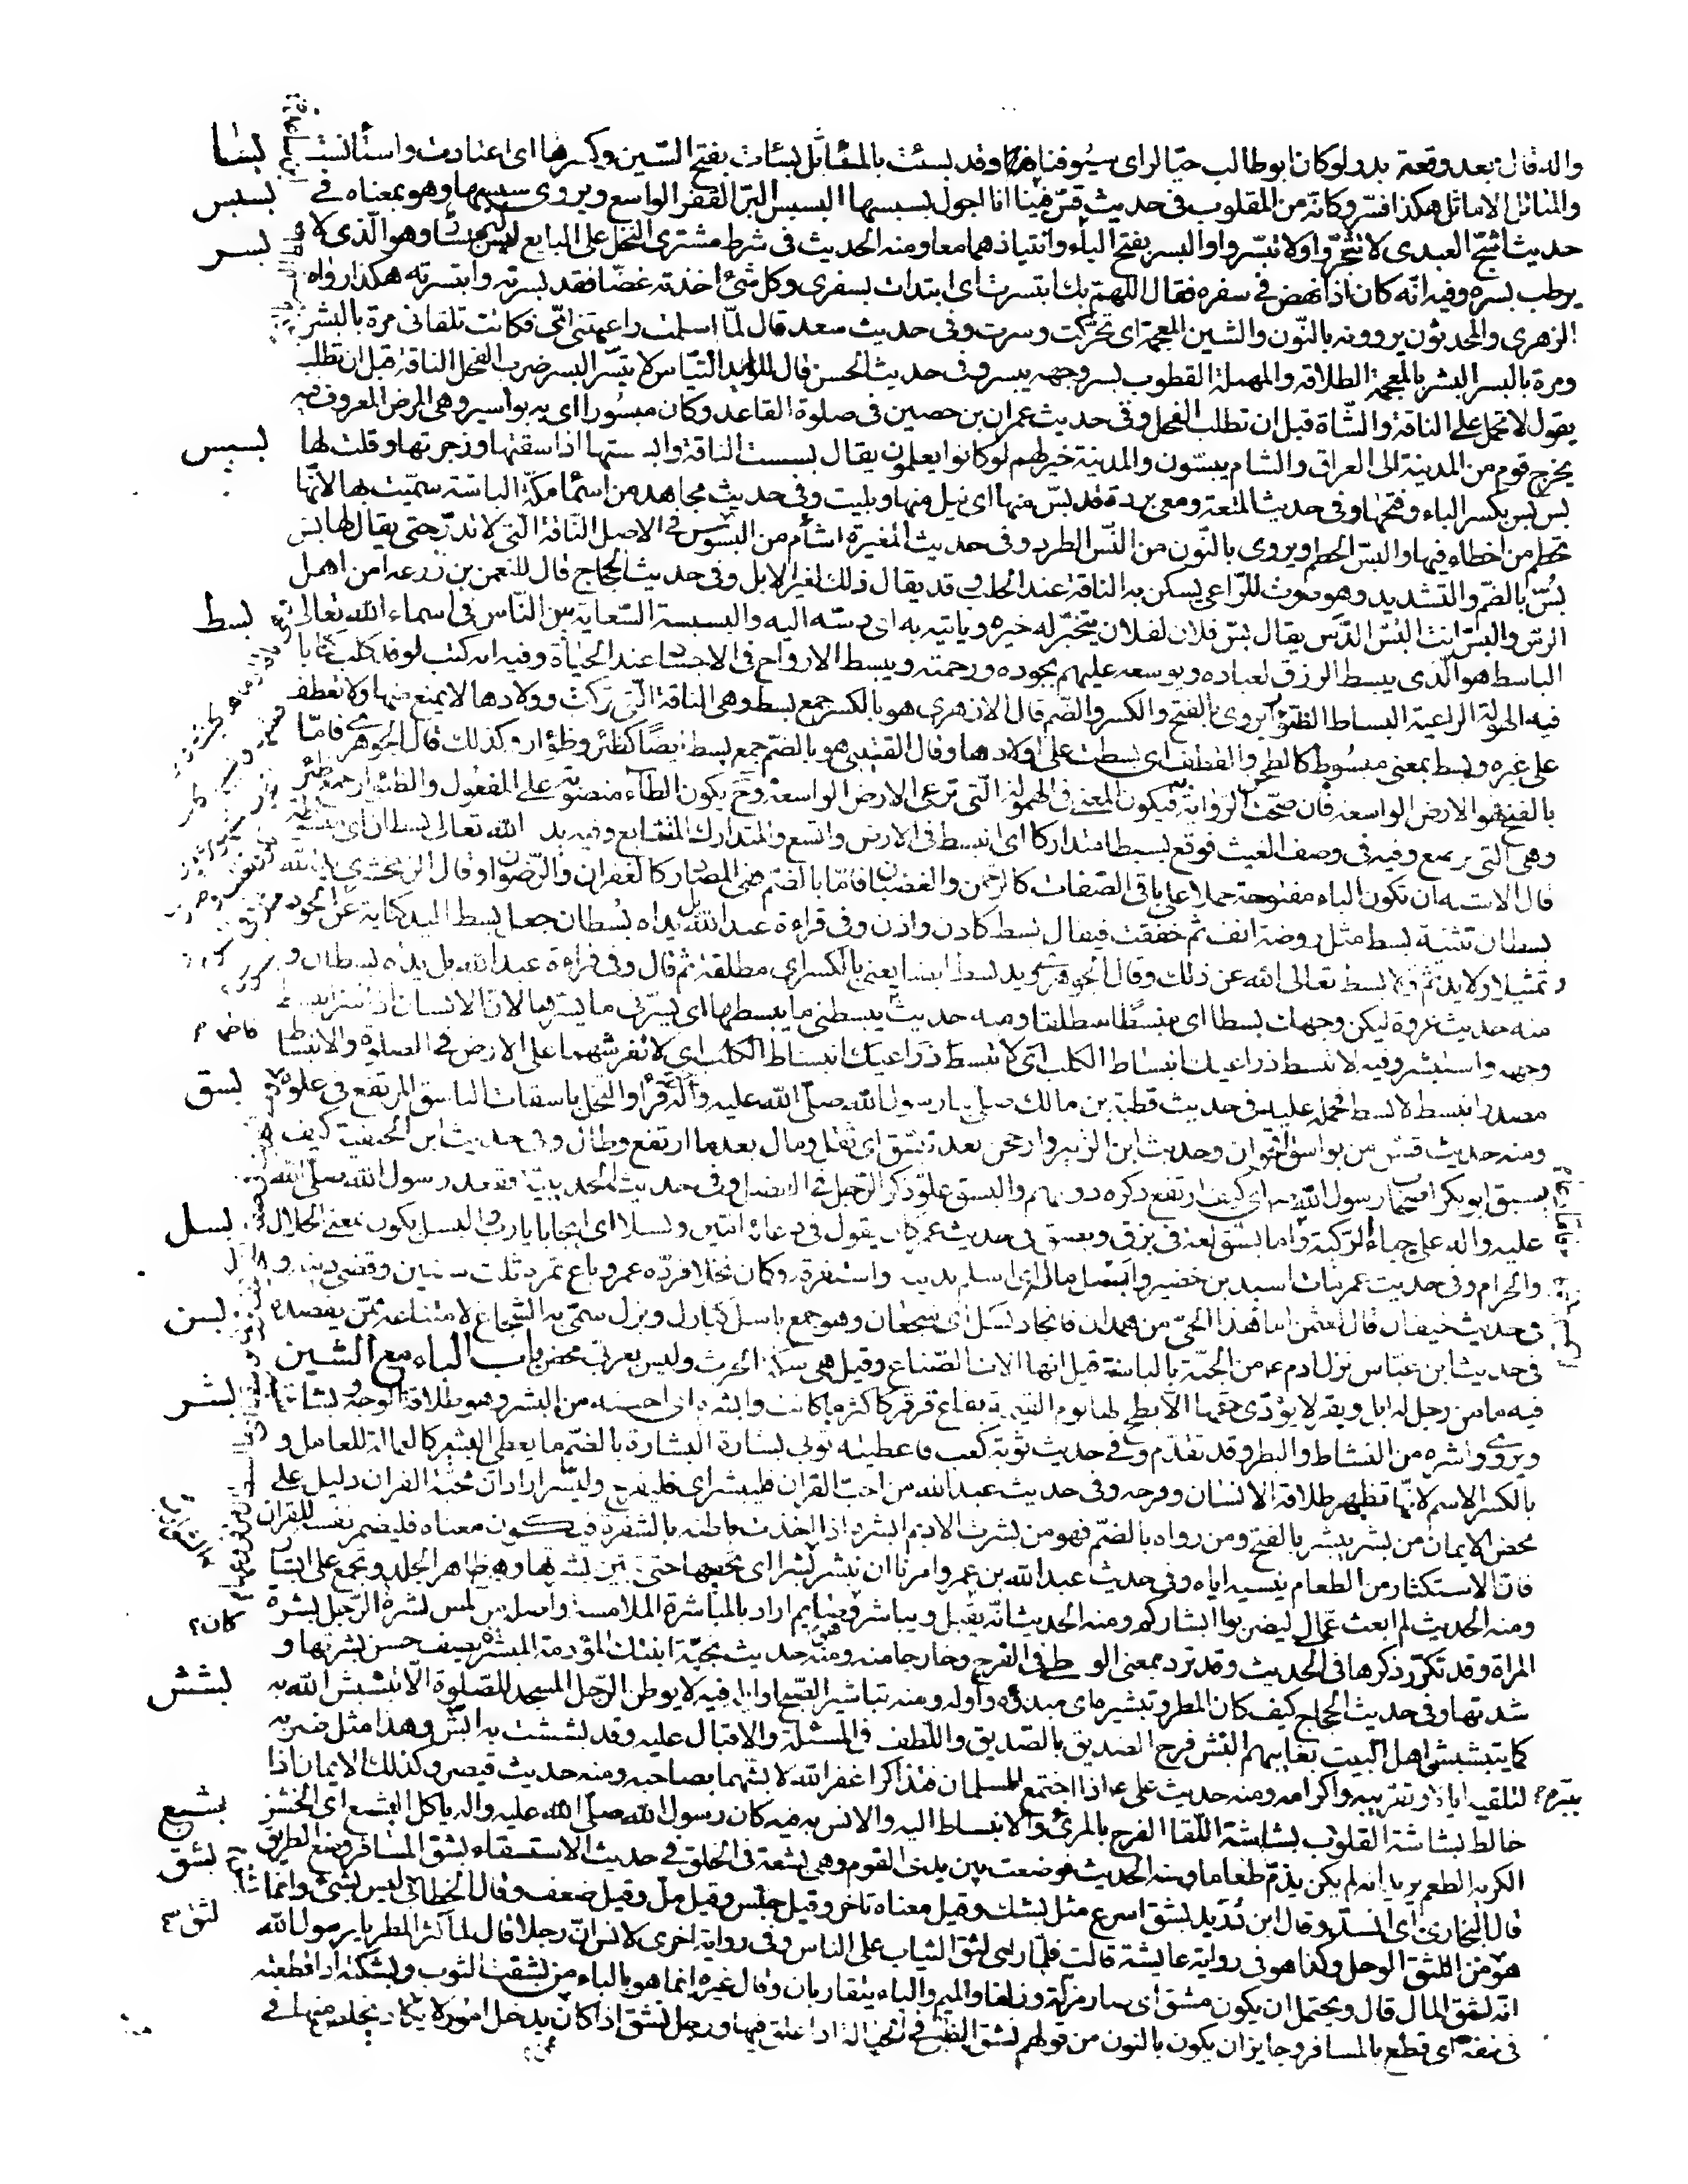 واله قال بعد وقعة بدر لو كان ابو طالب حيّا لراى سيوفنا وقد بسئت بالمياثل بسئات بفتح السّين وكسرها اى اعتادت واستأنست
بسا
والمياثل الاماثل هكذا فسّر وكانّه من المقلوب فى حديث قسّ فبينا انا اجول بسبسها البسبس البرّ القفر الواسع ويروى سبسبها وهو بمعناه فى
بسبس
حديث اشجّ العبدى لا تثجروا ولا تبسروا البسر بفتح الباء ومنه الحديث فى شرط مشترى النخل على البايع ليس له مبسار وهو الّذى لا
بسر
يرطب بسره وفيه انّه كان اذا نهض فى سفره فقال اللّهمّ بك ابتسرت اى ابتدات بسفرى وكل شئ اخذته غضّا فقد بسرته وابتسرته هكذا رواه
الزهرى والمحدثون يروونه بالنّون والشين المعجمة اى تحركت وسرت وفى حديث سعد قال لمّا اسلمت راغمتنى امّى فكانت تلقانى مرة بالبشر
ومرة بالبسر البشر بالمعجمة الطلاقة وبالمهملة القطوب بسر وجهه يبسر وفى حديث الحسن قال للوليد التيّاس لا تبسر البسر ضرب الفحل الناقة قبل ان تطلب
يقول لا تحمل على الناقة والشّاة قبل ان تطلب الفحل وفى حديث عمران بن حصين فى صلوة القاعد وكان مبسورا اى به بواسير وهى المرض المعروف فيه
يخرج قوم من المدينة الى العراق والشام يبسّون والمدينة خير لهم لو كانوا يعلمون يقال بسست الناقة وابسستها اذا سقتها وزجرتها وقلت لها
بسس
بس بس بكسر الباء وفتحها وفى حديث المتعة ومعى بردة قد بسّ منها اى نيل منها وبليت وفى حديث مجاهد من اسماء مكّة الباسّة سمّيت بها لانّها
تحطم من اخطاء فيها والبسّ الحطم ويروى بالنّون من النّس الطرد وفى حديث المغيرة اشأم من البسوس فى الاصل النّاقة الّتى لا تدرّ حتى يقال لها بس
بسّ بالضم والتشديد وهو صوت للرّاعى يسكن به الناقة عند الحلب وقد يقال ذلك لغير الابل وفى حديث الحجّاج قال للنعمن بن زرعه امن اهل
الرسّ والبسّ انت البسّ الدّس يقال بسّ فلان لفلان من يتخبّر له خبره وياتيه به اى دسّه اليه والبسبسة السّعاية بين النّاس فى اسماء الله تعالى
بسط
الباسط هو الّذى يبسط الرزق لعباده ويوسعه عليهم بجوده ورحمته ويبسط الارواح فى الاجساد عند الحياة وفيه انه كتب لوفد كلب كتابا
فيه الحمولة الراعية البساط الظؤار يروى بالفتح والكسر والضّم قال الازهرى هو بالكسر جمع بسط وهى الناقة الّتى تركت وولدها لا يمنع منها ولا تعطف
على غيره وبسط بمعنى مبسوط كالطحن والقطف اى بسطت على اولادها وقال القتيبى هو بالضّم جمع بسط ايضًا كظئر وظؤار وكذلك قال الجوهرى فامّا
بالفتح فهو الارض الواسعه فان صحّت الرّواية به فيكون المعنى فى الهمولة الّتى ترعى الارض الواسعة وح يكون الطاء منصوبة على المفعول والظئار جمع ظئر
وهى التى ترضع وفيه فى وصف الغيث فوقع بسيطا متداركا اى انبسط فى الارض واتسع والمتدارك المتتابع وفيه يد الله تعالى بسطان اى مبسوطة
قال الاشبه ان تكون الباء مفتوحة حملا على باقى الصّفات كالرحمن والغضبان فامّا بالضّم ففى المصادر كالغفران والرّضوان وقال الزمخشرى يد الله
بسطان تثنية بسط مثل روضة انف ثم خففت فيقال بسط كاذن واذن وفى قراءة عبد الله بل يداه بسطان جعل بسط اليد كناية عن الجود
وتمثيلا ولا يد ثمّ ولا بسط تعالى الله عن ذلك وقال الجوهرى ويد بسط ايضا يعنى بالكسر اى مطلقة ثم قال وفى قراءة عبد الله بل يداه بسطان و
منه حديث عروة ليكن وجهك بسطا اى منبسطًا منطلقا ومنه حديث يبسطنى ما يبسطها اى يسرّنى ما يسرّها لان الانسان اذا سرّ انبسط
وجهه واستبشر وفيه لا تبسط ذراعيك انبساط الكلب اى لا تفرشهما على الارض فى الصلوة والانبساط
مصدر انبسط لا بسط فحمله عليه فى حديث قطبة بن مالك صلى بنا رسول الله صلّى الله عليه وآله قرأ والنخل باسقات الباسق المرتفع فى علوه
بسق
ومنه حديث قسّ من بواسق اقحوان وحديث ابن الزبير وارجحن بعد تبسّق اى ثقل ومال بعد ما ارتفع وطال وفى حديث ابن الحنفية كيف
بسق ابو بكر اصحاب رسول الله اى كيف ارتفع ذكره دونهم والبسق علو ذكر الرّجل فى الفضل وفى حديث الحديبية فقعد رسول الله صلّى الله
عليه واله على جباء الرّكية فامّا بسق لغة فى بزق وبصق فى حديث عمر كان يقول فى دعائه امين وبسلا اى ايجابا يا رب والبسل يكون بمعنى الحلال
بسل
والحرام وفى حديث عمر مات اسيد بن حضير وابسل ماله اى اسلم بدينه واستغرقه وكان نخلا فردّه عمر وباع ثمره ثلث سنين وقضى دينه و
فى حديث خيفان قال لعثمن امّا هذا الحىّ من همدان فانجاد بسل اى شجعان وهو جمع باسل كبازل وبزل سمّى به الشجاع لامتناعه ممّن يقصده
بسن
فى حديث ابن عبّاس نزل ادم ع من الجنّة بالباسنة قيل انها الات الصّناع وقيل هى سكة الحرث وليس بعربىّ محض باب الباء مع الشين
فيه ما من رجل له ابل وبقر لا يؤدّى حقّها الّا بطح لها يوم القيمة بقاع قرقر كاكثر ما كانت وابشره اى احسنه من البشر وهو طلاقة الوجه وبشاشته
بشر
ويروى واشره من النشاط والبطر وقد تقدّم وفى حديث توبة كعب فاعطيته ثوبى بشارة البشارة بالضّم ما يعطى البشير كالعمالة للعامل و
بالكسر الاسم لانّها تظهر طلاقة الانسان وفرحه وفى حديث عبد الله من احبّ القرآن فليبشر اى فليفرح وليسّر اراد ان محبّة القرآن دليل على
محض الايمان من بشر يبشر بالفتح ومن رواه بالضّم فهو من بشرت الاديم ابشره اذا اخذت باطنه بالشفرة فيكون معناه فليضمر نفسه للقرآن
فان الاستكثار من الطعام ينسيه اياه وفى حديث عبد الله بن عمرو امرنا ان نبشر الشوارب بشرا اى نحفيها حتى تبين بشرتها وهى ظاهر الجلد وتجمع على ابشار
ومنه الحديث لم ابعث عمّالى ليضربوا ابشاركم ومنه الحديث انّه يقبل ويباشر وهو صايم اراد بالمباشرة الملامسة واصله من لمس بشرة الرّجل بشرة
كان؟
المراة وقد تكرّر ذكرها فى الحديث وقد ترد بمعنى الوطى فى الفرج وخارجا منه ومنه حديث نجيّة ابنتك المؤدمة المبشرة يصف حسن بشرتها و
شدتها وفى حديث الحجاج كيف كان المطر وتبشيره اى مبدؤه واوّله ومنه تباشير الصّبح اوائله فيه لا يوطن الرّجل المسجد للصّلوة الّا تبشبش الله به
بشش
كما يتبشبش اهل البيت بغايبهم البش فرح الصديق بالصّديق واللّطف فى المسئلة والاقبال عليه وقد بششت به ابش وهذا مثل ضربه
لتلقيه اياه وتقريبه واكرامه ومنه حديث على ع اذا اجتمع المسلمان فتذاكرا غفر الله لابشّهما بصاحبه ومنه حديث قيصر وكذلك الايمان اذا
ببرّه
خالط بشاشة القلوب بشاشة اللّقا الفرح بالمرئ والانبساط اليه والانس به فيه كان رسول الله صلّى الله عليه واله ياكل البشع اى الخشن
بشع
الكريه الطعم يريد انه لم يكن يذمّ طعاما ومنه الحديث فوضعت بين يدى القوم وهى بشعة فى الحلق فى حديث الاستسقاء بشق المسافر ومنع الطريق
بشق
قال البخارى اى انسدّ وقال ابن دريد بشق اسرع مثل بشك وقيل معناه تاخر وقيل حبس وقيل ملّ وقيل ضعف وقال الخطابى ليس بشئ وانّما
هو من اللثق الوحل وكذا هو فى رواية عايشة قالت فلمّا راى لثق الثياب على الناس وفى رواية اخرى لانس انّ رجلا قال لما كثر المطر يا رسول الله
لثق
انّه لثق المال قال ويحتمل ان يكون مشق اى صار مزلّة وزلقا والميم والباء يتقاربان وقال غيره انما هو بالباء من بشقت الثوب وبشكته اذا قطعته
فى خفّة اى قطع بالمسافر وجايز ان يكون بالنون من قولهم نشق الظبى فى الحبالة اذا علق فيها ورجل نشق اذا كان يدخل امور لا يكاد يتخلّص منها فى